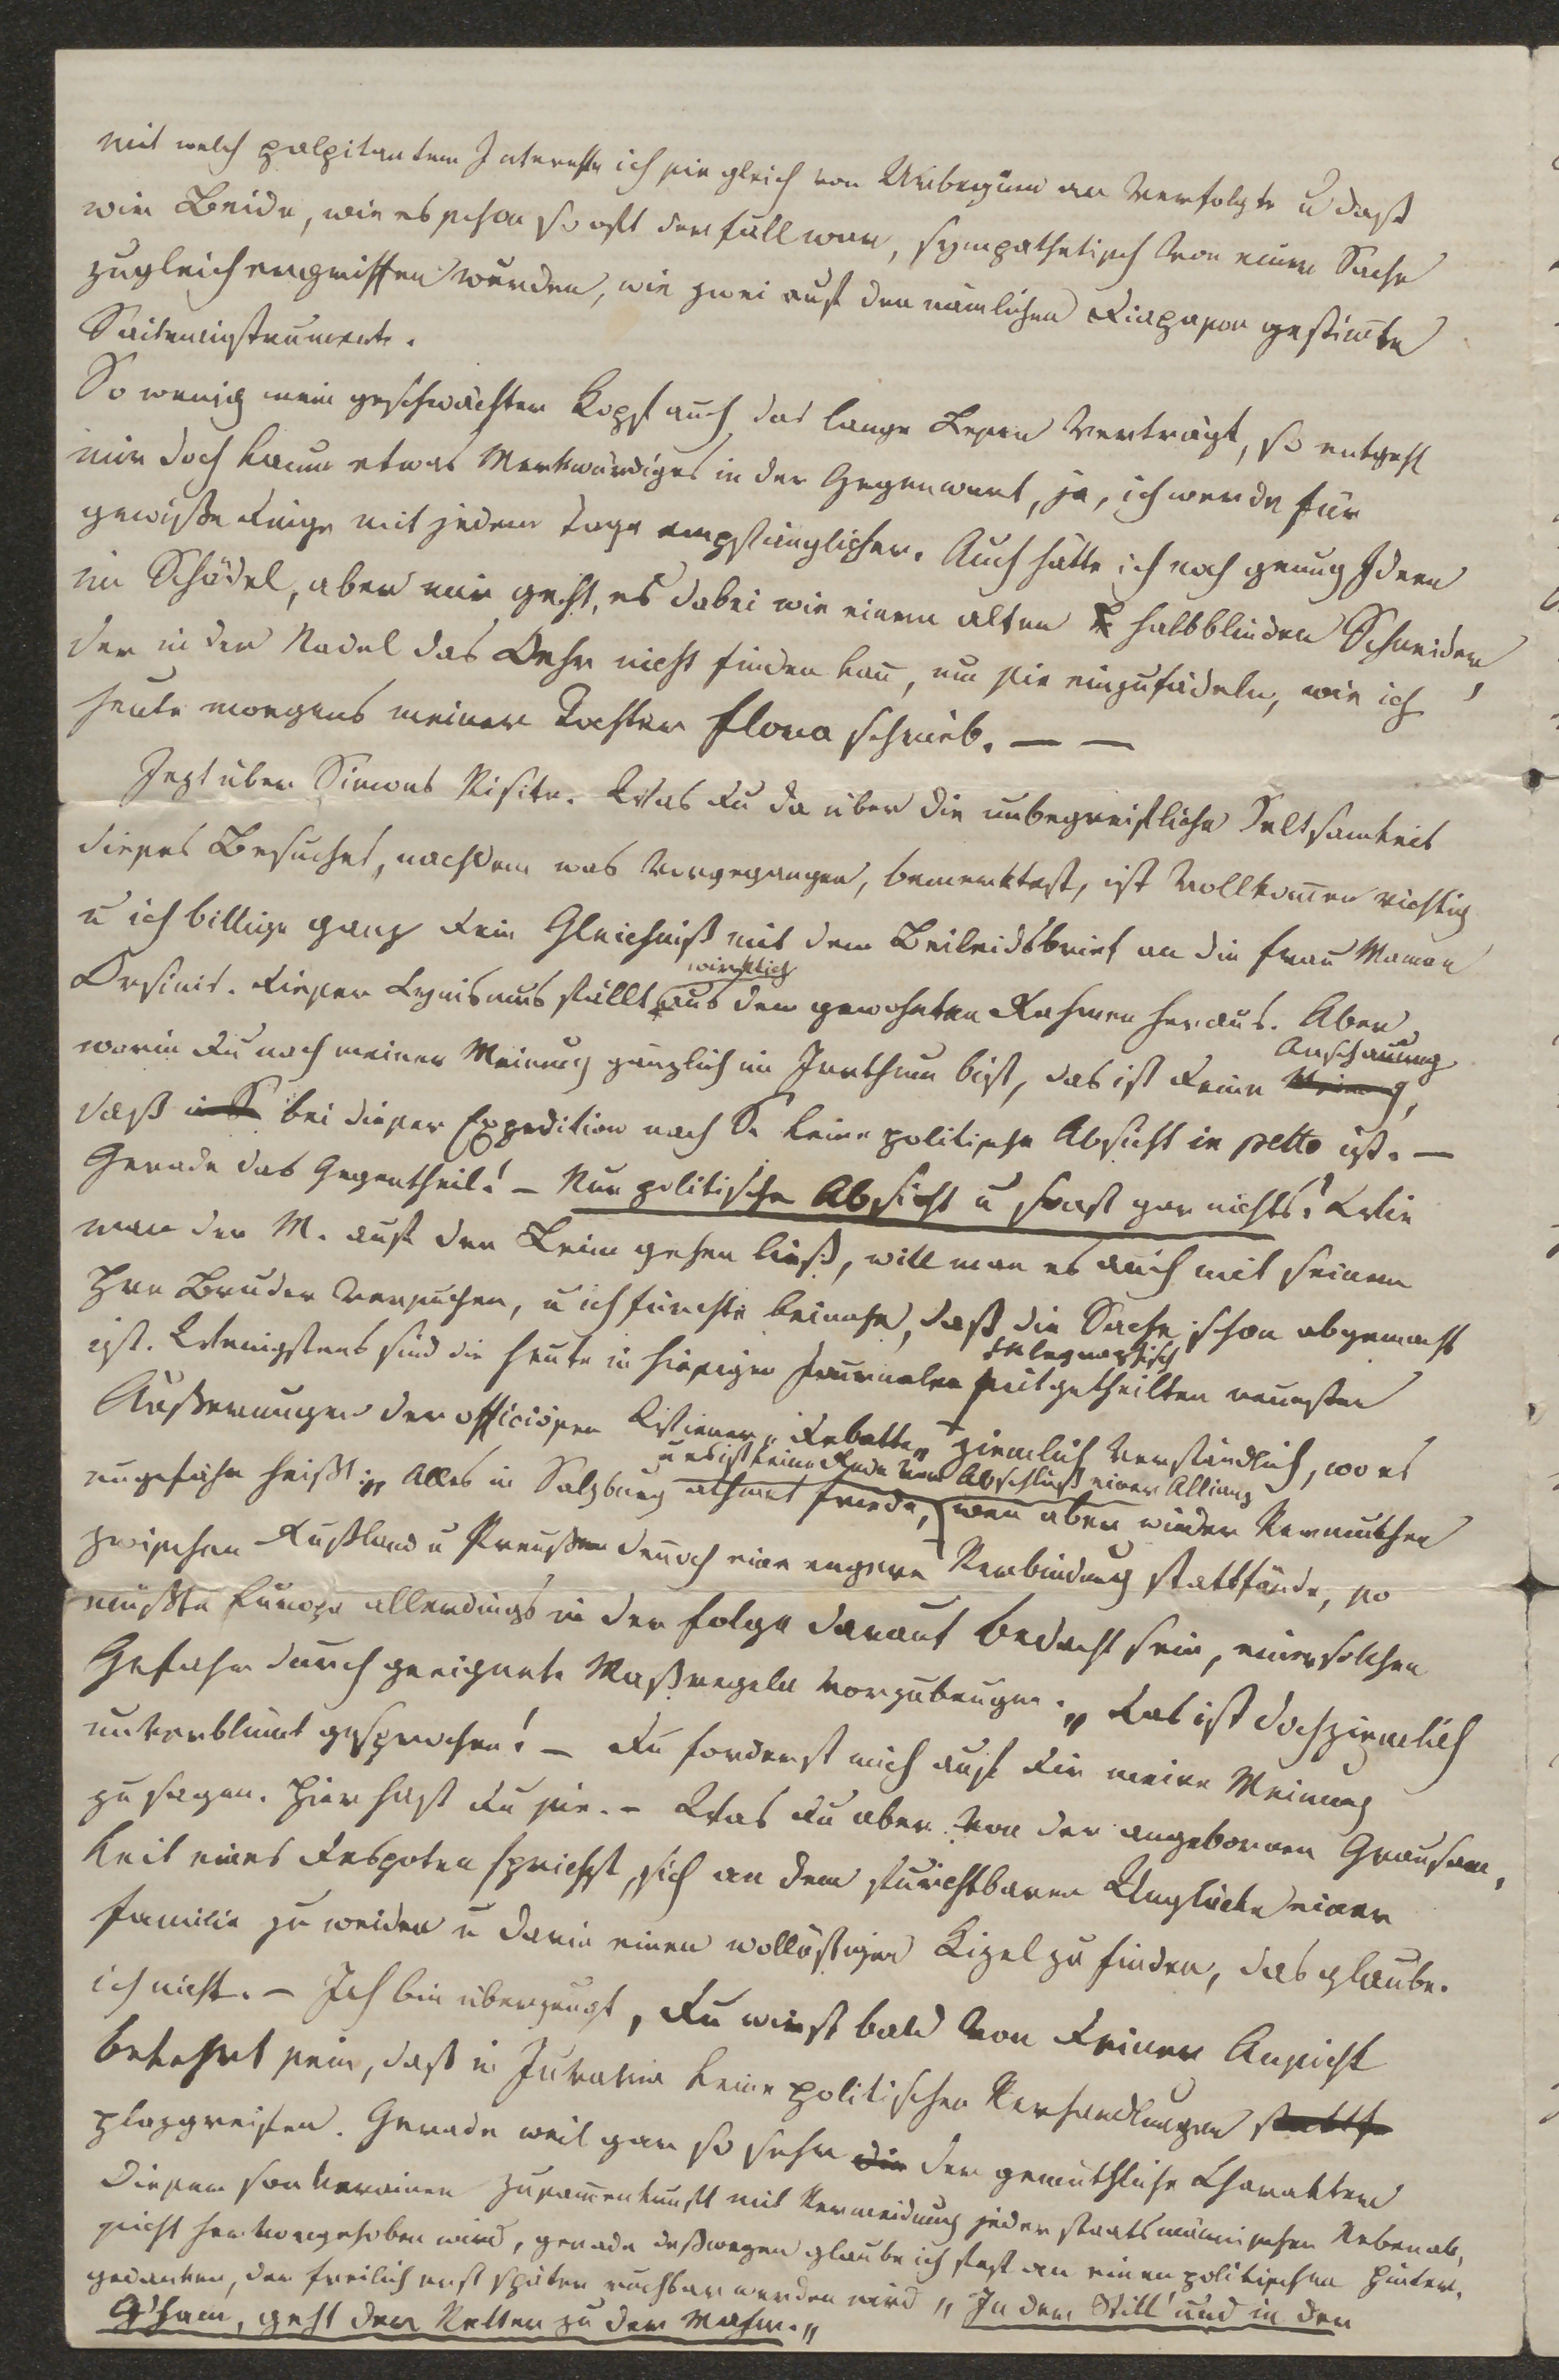 mit welch palpitantem Interesse ich sie gleich von Urbeginn an verfolgte u daß
wir Beide, wie es schon so oft der Fall war, sympathetisch von einer Sache
zugleich ergriffen wurden, wie zwei auf den nämlichen Diapason gestim̅te
Saiteninstrumente.
So wenig mein geschwächter Kopf auch das lange Lesen verträgt, so entgeht
mir doch kaum etwas Merkwürdiges in der Gegenwart, ja, ich werde für
gewisse Dinge mit jedem Tage empfänglicher. Auch hätte ich noch genug Ideen
im Schädel, aber mir geht es dabei wie einem alten halbblinden Schneider,
der in der Nadel das Oehr nicht finden kan̅, um sie einzufädeln, wie ich
heute morgens meiner Tochter Flora schrieb. — —
Jezt über Simons Visite. Was Du da über die unbegreifliche Seltsamkeit
dieses Besuches, nachdem was vorgegangen, bemerktest, ist vollkom̅en richtig
u ich billige ganz Dein Gleichniß mit dem Beileidsbrief an die Frau Maman
Orsinis. Dieser Cynismus fällt wirklich aus dem gewohnten Rahmen heraus. Aber
worin Du nach meiner Meinung gänzlich im Irrthum bist, das ist Deine Meinung Anschauung,
daß in S bei dieser Expedition nach S. keine politische Absicht in petto ist. —
Gerade das Gegentheil! — Nur politische Absicht u sonst gar nichts! Wie
man den M. auf den Leim gehen ließ, will man es auch mit seinem
Hrn Bruder versuchen, u ich fürchte beinahe, daß die Sache schon abgemacht
ist. Wenigstens sind die heute in hiesigen Journalen telegraphisch mitgetheilten neuesten
Äußerungen der officiösen Wiener „Debatte„ ziemlich verständlich, wo es
ungefähr heißt: „Alles in Salzburg athmet Friede, u es ist keine Rede vom Abschluß einer Allianz
wen̅ aber wieder Vermuthen
zwischen Rußland u Preußen den̅och eine engere Verbindung stattfände, so
müßte Europa allerdings in der Folge darauf bedacht sein, einer solchen
Gefahr durch geeignete Maßregeln vorzubeugen.„ Das ist doch ziemlich
unverblümt gesprochen! — Du forderst mich auf Dir meine Meinung
zu sagen. Hier hast Du sie. — Was Du aber von der angebornen Grausam-
keit eines Despoten sprichst, sich an dem furchtbaren Unglücke einer
Familie zu weiden u darin einen wollüstigen Kizel zu finden, das glaube
ich nicht. — Ich bin überzeugt, Du wirst bald von Deiner Ansicht
bekehrt sein, daß in Juvavia keine politischen Verhandlungen stattf
plazgreifen. Gerade weil gar so sehr die der gemüthliche Charakter
dieser souverainen Zusam̅enkunft mit Vermeidung jeder staatsmännischen Nebenab-
sicht hervorgehoben wird, gerade deßwegen glaube ich fest an einen politischen Hinter-
gedanken, der freilich erst später ruchbar werden wird „In der Still' und in der
G'ham, geht der Vetter zu der Mahm.„